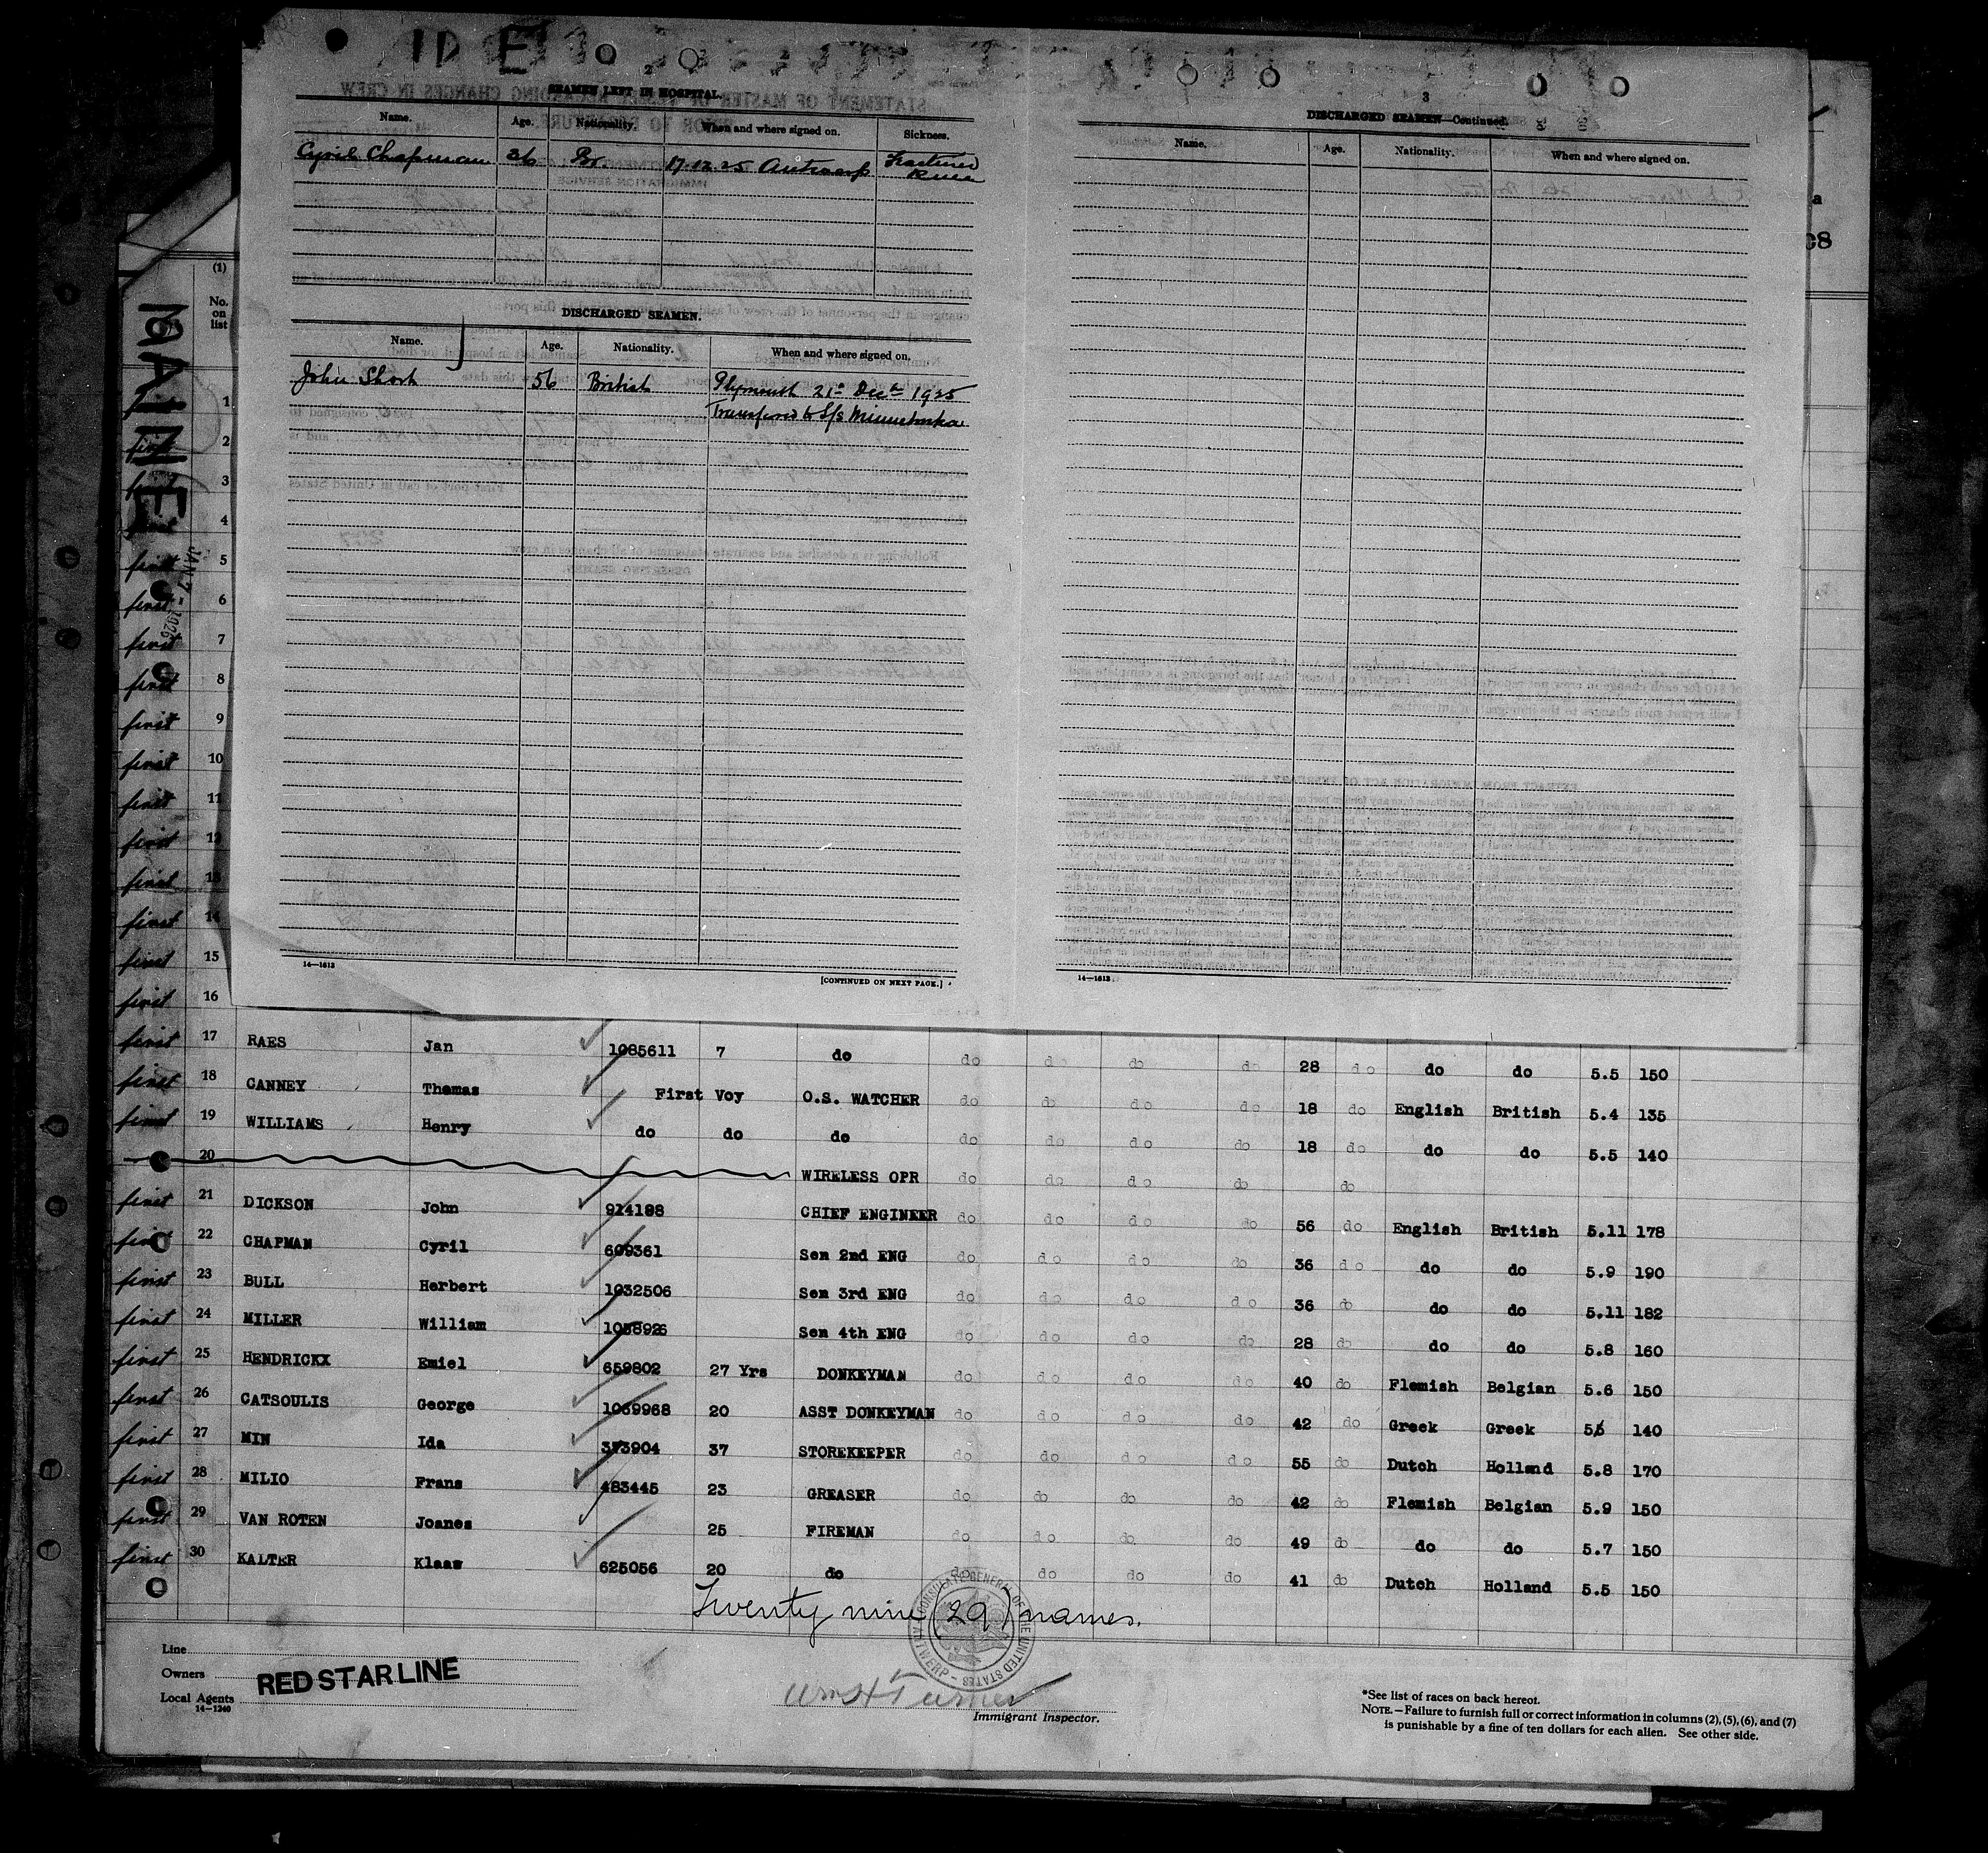 ID E
2
SEAMEN LEFT IN HOSPITAL.
Name. Age. Nationality. When and where signed on. Sickness.
Cyril Chapman 36 Br. 17.12.25 Antwerp Fractured
Knee
DISCHARGED SEAMEN.
Name. Age. Nationality. When and where signed on.
John Short 56 British Plymouth 21st Decr 1925
Transferred to S/s Minnetonka
14—1613
[CONTINUED ON NEXT PAGE.]
3
DISCHARGED SEAMEN—Continued.
Name. Age. Nationality. When and where signed on.
14—1613
MAINE
JAN 7 - 1926
(1)
No.
on
list
first 1
first 2
first 3
first 4
first 5
first 6
first 7
first 8
first 9
first 10
first 11
first 12
first 13
first 14
first 15
first 16
first 17 RAES Jan 1085611 7 do do do do do 28 do do do 5.5 150
first 18 CANNEY Thomas First Voy O.S. WATCHER do do do do 18 do English British 5.4 135
first 19 WILLIAMS Henry do do do do do do do 18 do do do 5.5 140
20 WIRELESS OPR do do do do do
first 21 DICKSON John 914198 CHIEF ENGINEER do do do do 56 do English British 5.11 178
first 22 CHAPMAN Cyril 609361 Sen 2nd ENG do do do do 36 do do do 5.9 190
first 23 BULL Herbert 1032506 Sen 3rd ENG do do do do 36 do do do 5.11 182
first 24 MILLER William Sen 4th ENG do do do do 28 do do do 5.8 160
first 25 HENDRICKX Emiel 659802 27 Yrs DONKEYMAN do do do do 40 do Flemish Belgian 5.6 150
first 26 CATSOULIS George 1069968 20 ASST DONKEYMAN do do do do 42 do Greek Greek 140
first 27 MIN Ida 373904 37 STOREKEEPER do do do do 55 do Dutch Holland 5.8 170
first 28 MILIO Frans 483445 23 GREASER do do do do 42 do Flemish Belgian 5.9 150
first 29 VAN ROTEN Joanes 25 FIREMAN do do do do 49 do do do 5.7 150
first 30 KALTER Klaas 625056 20 do do do do do 41 do Dutch Holland 5.5 150
Twenty nine (29) names.
CONSULATE GENERAL OF THE UNITED STATES - ANTWERP -
Line
Owners RED STAR LINE
Local Agents
14—1240
Wm H Turner
Immigrant Inspector.
*See list of races on back hereof.
NOTE.—Failure to furnish full or correct information in columns (2), (5), (6), and (7)
is punishable by a fine of ten dollars for each alien. See other side.